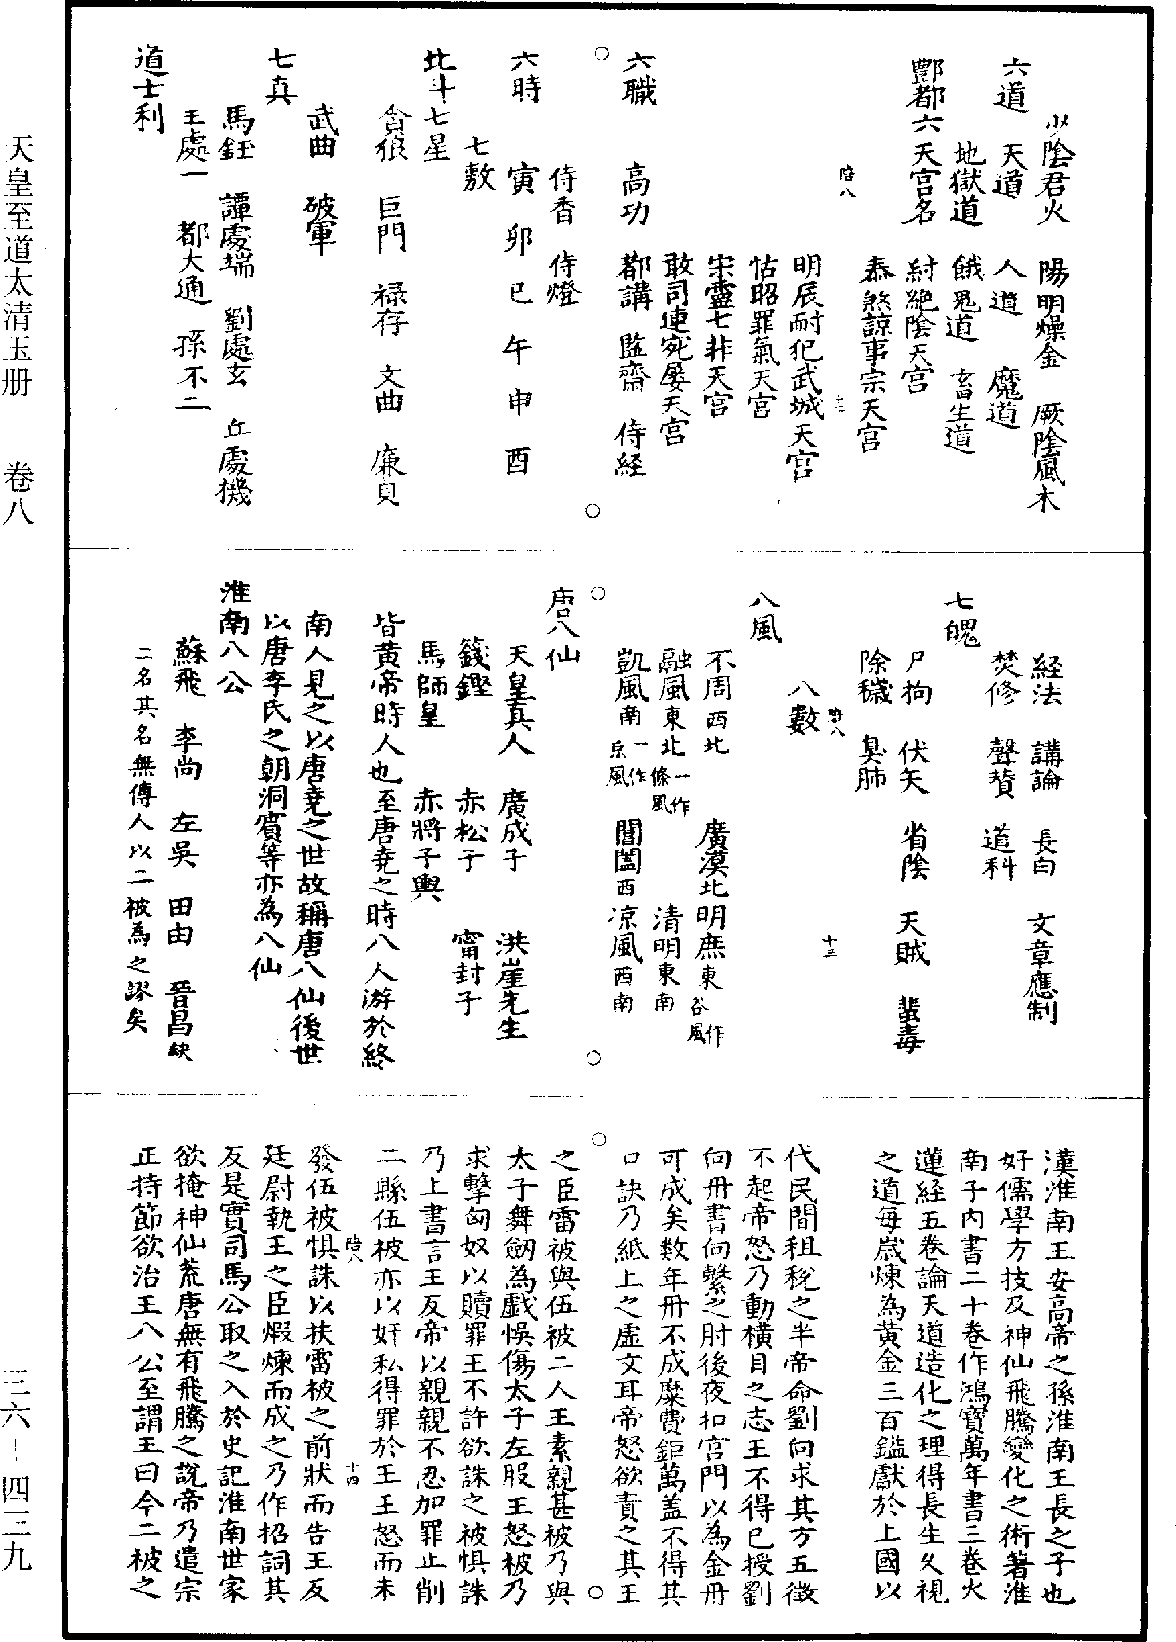 天皇至道太清玉册　卷八
三六—四三九
少陰君火　陽明燥金　厥陰風木
六道　天道　人道　魔道
地獄道　餓鬼道　畜生道
酆都六天宫名　紂絶陰天宫
泰煞諒事宗天宫
陪八　十二
明辰耐犯武城天宫
怙昭罪氣天宫
宗靈七非天宫
敢司連宛屢天宫
六職　高功　都講　監齋　侍經
侍香　侍燈
六時　寅　卯　巳　午　申　酉
七數
北斗七星
貪狼　巨門　禄存　文曲　廉貞
武曲　破軍
七真
馬鈺　譚處端　劉處玄　丘處機
王處一　都大通　孫不二
道士利
經法　講論　長白　文章應制
焚修　聲贊　道科
七魄
尸拘　伏矢　省陰　天賊　蜚毒
除穢　臭肺
陪八　十三
八數
八風
不周西北　廣漠北　明庶東一作谷風
融風東北一作條風　清明東南
凱風南一作京風　閶闔西　凉風西南
唐八仙
天皇真人　廣成子　洪崖先生
籛鏗　赤松子　甯封子
馬師皇　赤將子輿
皆黄帝時人也至唐堯之時八人游於終
南人見之以唐堯之世故稱唐八仙後世
以唐李氏之朝洞賓等亦為八仙
淮南八公
蘇飛　李尚　左吳　田由　晉昌缺
二名其名無傳人以二被為之謬矣
漢淮南王安高帝之孫淮南王長之子也
好儒學方技及神仙飛騰變化之術著淮
南子内書二十卷作鴻寶萬年書三卷火
蓮經五卷論天道造化之理得長生久視
之道每歲煉為黄金三百鎰獻於上國以
代民間租税之半帝命劉向求其方五徵
不起帝怒乃動橫目之志王不得已授劉
向册書向繫之肘後夜扣宫門以為金册
可成矣数年册不成糜費鉅萬盖不得其
口訣乃紙上之虚文耳帝怒欲責之其王
之臣雷被與伍被二人王素親甚被乃與
太子舞劒為戲悮傷太子左股王怒被乃
求擊匈奴以贖罪王不許欲誅之被惧誅
乃上書言王反帝以親親不忍加罪止削
二縣伍被亦以奸私得罪於王王怒而未
陪八　十四
發伍被惧誅以扶雷被之前狀而告王反
廷尉執王之臣煅煉而成之乃作招詞其
反是實司馬公取之入於史記淮南世家
欲掩神仙荒唐無有飛騰之說帝乃遣宗
正持節欲治王八公至謂王曰今二被之